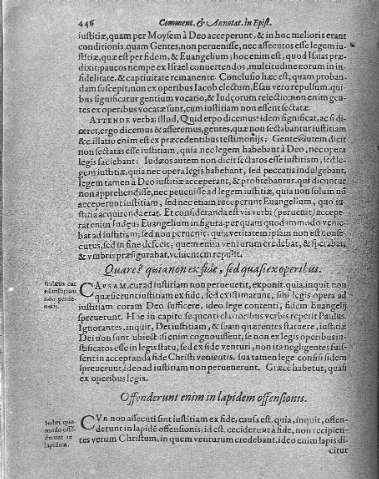 446 Comment. & Annotat. in Epist.
iustitiæ, quam per Moysem à Deo acceperunt, & in hoc melioris erant
conditionis quam Gentes, non peruenisse, nec assecutos esse legem iu-
stitiæ, quæ est per fidem, & Euangelium; hoc enim est, quod Isaias præ-
dixit: paucos nempe ex Israel conuertendos, multitudine eorum in in-
fidelitate, & captiuitate remanente. Conclusio hæc est, quam proban-
dam suscepit, non ex operibus Iacob electum, Esau vero repulsum, qui-
bus significatur gentium vocatio, & Iudæorum reiectio: non enim gen-
tes ex operibus vocatæ sunt, cum iustitiam non essent sectatæ.
ATTENDE verba illud, Quid ergo dicemus idem significat, ac si di-
ceret, ergo dicemus & asseremus, gentes, quæ non sectabantur iustitiam
& illatio enim est ex præcedentibus testimonijs. Gentes autem dicit
non sectatas esse iustitiam, quia nec legem habebant à Deo, nec opera
legis faciebant: Iudæos autem non dicit sectatos esse iustitiam, sed le-
gem iustitiæ, quia nec opera legis habebant, sed peccatis indulgebant,
legem tamen à Deo iustitiæ acceperant, & profitebantur, qui dicuntur
non apprehendisse, nec peruenisse ad legem iustitiæ, quia non solum nō
acceperunt iustitiam, sed nec etiam receperunt Euangelium, quo iu-
stitia acquirenda erat. Et consideranda est vis verbi
rat enim Iudæis Euangelium in figura per quam quodammodo venie-
bat ad iustitiam, sed non peruenit: quia veritatem ipsam non est conse-
cutus, sed in fine defecit; quem enim venturum credebat, & sperabat,
& vmbris præfigurabat, venientem repulit.
Quare? quia non ex fide, sed quasi ex operibus.
Iudæus cur
ad iustitiam
non perue-
nerit.
CAVSAM, cur ad iustitiam non peruenerit, exponit, quia, inquit, non
quæsierunt iustitiam ex fide, sed existimarunt, sibi legis opera ad
iustitiam coram Deo sufficere, ideo lege contenti, fidem Euangelij
spreuerunt. Hoc in capite sequenti clarioribus verbis repetit Paulus.
Ignorantes, inquit, Dei iustitiam, & suam quærentes statuere, iustitiæ
Dei non sunt subiecti: si enim cognouissent, se non ex legis operibus iu-
stificatos esse in legis statu, sed ex fide venturi, non ita negligentes fuis-
sent in acceptanda fide Christi venientis. sua tamen lege confisi fidem
spreuerunt, ideo ad iustitiam non peruenerunt. Græcè habetur, quasi
ex operibus legis.
Offenderunt enim in lapidem offensionis.
Iudæi, quo-
modo offē-
derint in
lapidem.
CVR non assecuti sint iustitiam ex fide, causa est, quia, inquit, offen-
derunt in lapidē offensionis; id est, ceciderunt à fide, non recipien-
tes verum Christum, in quem venturum credebant, ideo enim lapis di-
citur